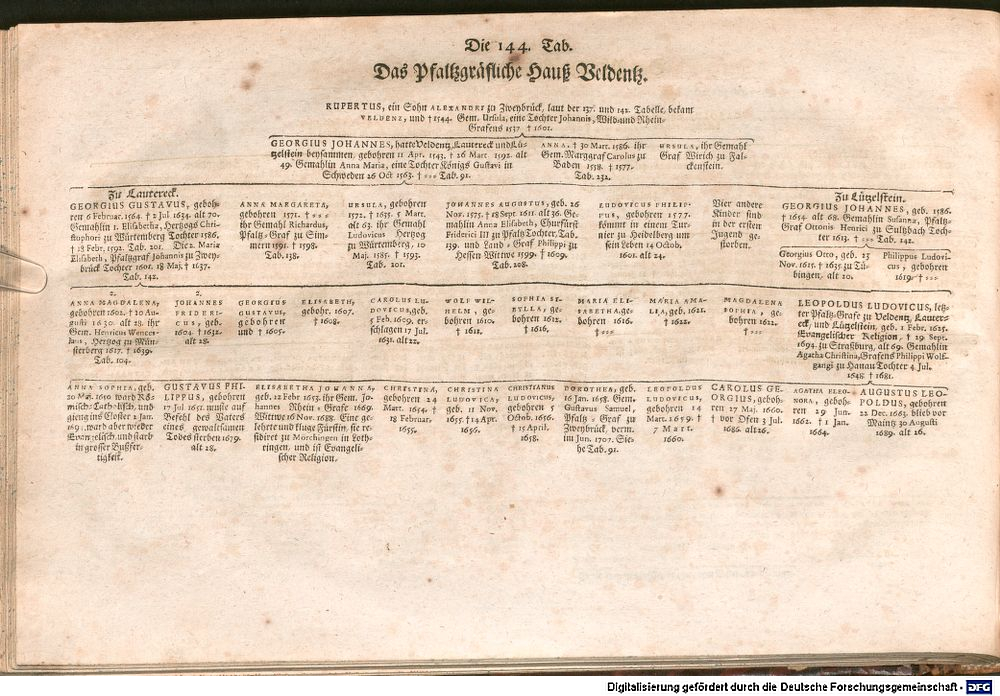 Die 144. Tab.
Das Pfaltzgräfliche Hauß Veldentz.
RUPERTUS, ein Sohn ALEXANDRI zu Zweybrück, laut der 137. und 142. Tabelle. bekam
VELDENZ, und †1544. Gem. Ursula, eine Tochter Johannis, Wild-und Rhein-
Grafens 1537 † 1601.
GEORGIUS JOHANNES, hatte Veldentz, Lautereck und Lü-
tzelstein beysammen, gebohren 11 Apr. 1543. † 26 Mart. 1592. alt
49. Gemahlin Anna Maria, eine Tochter Königs Gustavi in
Schweden 26 Oct 1563. † - - - Tab. 91.
ANNA, † 30 Mart. 1586. ihr
Gem. Marggraf Carolus zu
Baden 1558. † 1577.
Tab. 232.
URSULA, ihr Gemahl
Graf Wirich zu Fal-
ckenstein.
Zu Lautereck.
GEORGIUS GUSTAVUS, geboh-
ren 6 Februar. 1564. † 2 Jul. 1634. alt 70.
Gemahlin 1. Elisabetha, Hertzogs Chri-
stophori zu Würtemberg Tochter 1586.
† 18 Febr. 1592. Tab. 201. Die 2. Maria
Elisabeth, Pfaltzgraf Johannis zu Zwey-
brück Tochter 1601. 18 Maj. † 1637.
Tab. 142.
ANNA MARGARETA,
gebohren 1571. † - - -
ihr Gemahl Richardus,
Pfaltz-Graf zu Sim-
mern 1591. † 1598.
Tab. 138.
URSULA, gebohren
1572. † 1635. 5 Mart.
alt 63. ihr Gemahl
Ludovicus Hertzog
zu Würtemberg, 10
Maj. 1585. † 1593.
Tab. 201.
JOHANNES AUGUSTUS, geb. 26
Nov. 1575. † 18 Sept. 1611. alt 36. Ge-
mahlin Anna Elisabeth, Churfürst
Friderici III zu Pfaltz Tochter, Tab.
139. und Land-Graf Philippi zu
Hessen Wittwe 1599. † 1609.
Tab. 208.
LUDOVICUS PHILIP-
PUS, gebohren 1577.
kömmt in einem Tur-
nier zu Heidelberg um
sein Leben 14 Octob.
1601. alt 24.
Vier andere
Kinder sind
in der ersten
Jugend ge-
storben.
Zu Lützelstein.
GEORGIUS JOHANNES, geb. 1586.
† 1654. alt 68. Gemahlin Susanna, Pfaltz-
Graf Ottonis Henrici zu Sultzbach Toch-
ter 1613. † - - - Tab. 142.
Georgius Otto, geb. 23
Nov. 1615. † 1635 zu Tü-
bingen, alt 20.
Philippus Ludovi-
cus, gebohren
1619. † - - -
2.
ANNA MAGDALENA,
gebohren 1602. † 20 Au-
gusti 1630. alt 28. ihr
Gem. Henricus Wences-
laus, Hertzog zu Mün-
sterberg 1617. † 1639.
Tab. 104.
2.
JOHANNES
FRIDERI-
CUS, geb.
1604. † 1632.
alt 28.
GEORGIUS
GUSTAVUS,
gebohren
und † 1605.
ELISABETH,
gebohr. 1607.
† 1608.
CAROLUS LU-
DOVICUS, geb.
5 Feb. 1609. er-
schlagen 17 Jul.
1631. alt 22.
WOLF WIL-
HELM, ge-
bohren 1610.
† 1611.
SOPHIA SI-
BYLLA, ge-
bohren 1612.
† 1616.
MARIA ELI-
SABETHA, ge-
bohren 1616.
† - - -
MARIA AMA-
LIA, geb. 1621.
† 1622.
MAGDALENA
SOPHIA, ge-
bohren 1622.
† - - -
LEOPOLDUS LUDOVICUS, letz-
ter Pfaltz-Grafe zu Veldentz, Lauter-
eck, und Lützelstein, geb. 1 Febr. 1625.
Evangelischer Religion, † 29 Sept.
1694. zu Straßburg, alt 69. Gemahlin
Agatha Christina, Grafens Philippi Wolf-
gangi zu Hanau Tochter 4 Jul.
1648. † 1681.
ANNA SOPHIA, geb.
20 Maj. 1650 ward Rö-
misch-Catholisch, und
gieng ins Closter 2 Jan.
1691. ward aber wieder
Evangelisch, und starb
in grosser Bußfer-
tigkeit.
GUSTAVUS PHI-
LIPPUS, gebohren
17 Jul. 1651. muste auf
Befehl des Vaters
eines gewaltsamen
Todes sterben 1679.
alt 28.
ELISABETHA JOHANNA,
geb. 22 Febr 1653. ihr Gem. Jo-
hannes Rhein-Grafe 1669.
Wittwe 16 Nov. 1688. Eine ge-
lehrte und kluge Fürstin, sie re-
sidiret zu Mörchingen in Loth-
ringen, und ist Evangeli-
scher Religion.
CHRISTINA,
gebohren 24
Mart. 1654. †
18 Februar.
1655.
CHRISTINA
LUDOVICA,
geb. 11 Nov.
1655. † 14 Apr.
1656.
CHRISTIANUS
LUDOVICUS,
gebohren 5
Octob. 1656.
† 15 April.
1658.
DOROTHEA, geb.
16 Jan. 1658. Gem.
Gustavus Samuel,
Pfaltz-Graf zu
Zweybrück, verm.
im Jun. 1707. Sie-
he Tab. 91.
LEOPOLDUS
LUDOVICUS,
gebohren 14
Mart. 1659. †
7 Mart.
1660.
CAROLUS GE-
ORGIUS, geboh-
ren 27 Maj. 1660.
† vor Ofen 3 Jul.
1686. alt 26.
AGATHA ELEO-
NORA, geboh-
ren 29 Jun.
1662. † 1 Jan.
1664.
AUGUSTUS LEO-
POLDUS, gebohren
22 Dec. 1663. blieb vor
Maintz 30 Augusti
1689. alt 26.
Digitalisierung gefördert durch die Deutsche Forschungsgemeinschaft - DFG